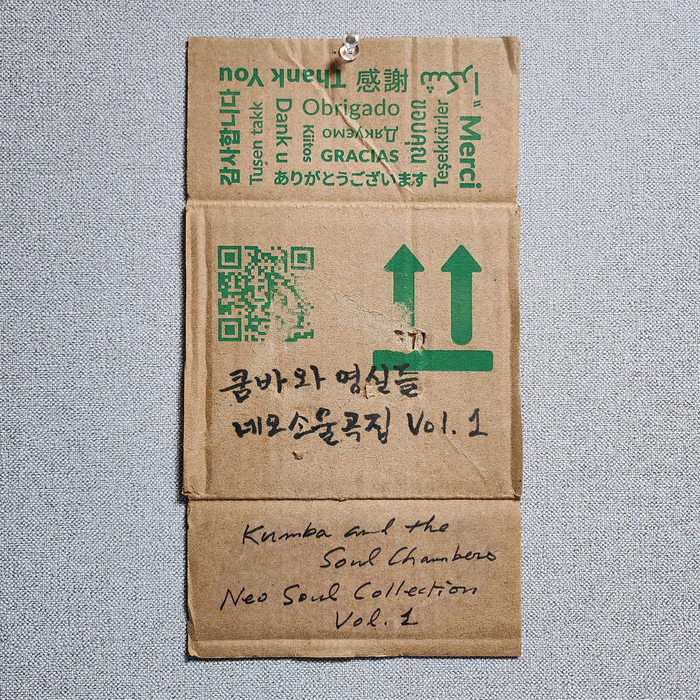 Thank You
감사합니다
Tusen takk
Dank u
Kiitos
Obrigado
感謝
Дякуємо
GRACIAS
ありがとうございます
ขอบคุณ
Teşekkürler
شكراً
Merci
쿰바와 영실들
네모소울곡집 Vol. 1
Kumba and the
Soul Chambers
Neo Soul Collection
Vol. 1